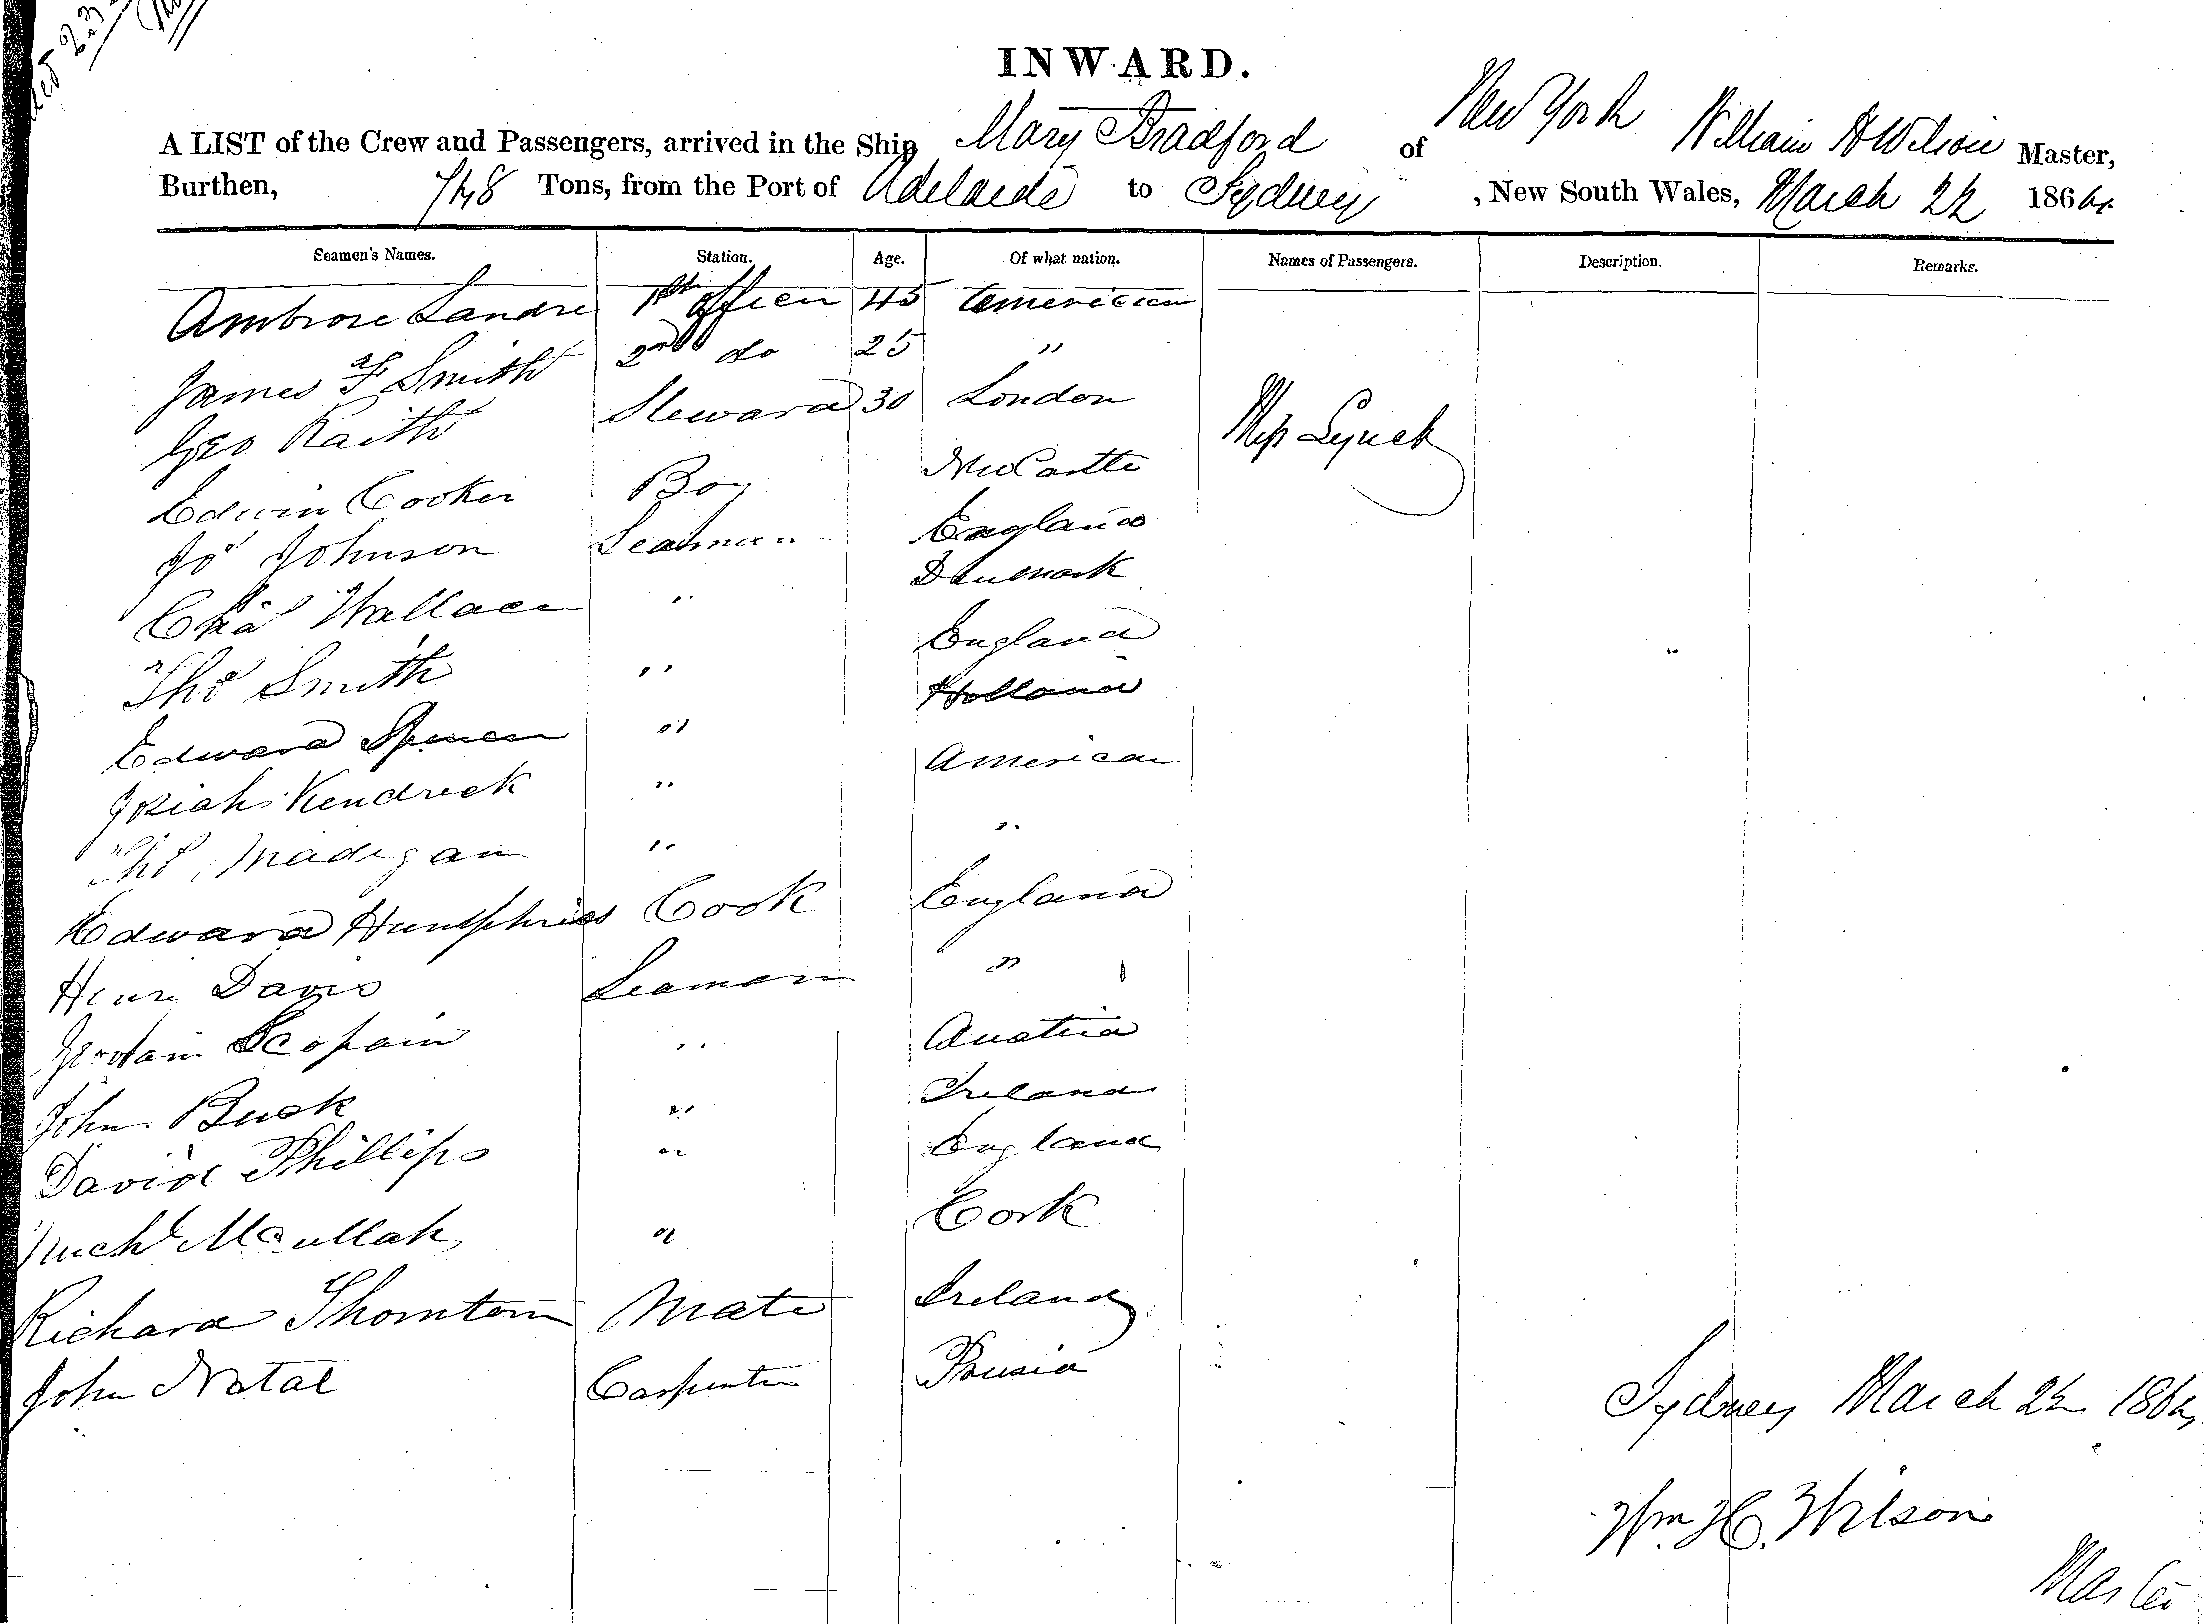 INWARD.
A LIST of the Crew and Passengers, arrived in the Ship Mary Bradford of New York William H Wilson Master,
Burthen, 748 Tons, from the Port of Adelaide to Sydney, New South Wales, March 22 1864
Seamen's Names. Station. Age. Of what nation. Names of Passengers. Description. Remarks.
Ambrose Landre 1st officer 45 American
James F Smith 2nd do 25 "
Geo Raith Steward 30 London
Miss Lynch
Edwin Cooker Boy NewCastle
Jo Johnson Seaman England
Chas Wallace " Denmark
Thos Smith " England
Edward Spencer " Holland
Josiah Kendrick " American
Thos Madigan " "
Edward Humphries Cook England
Henry Davis Seaman "
Scopain " Austria
John Buck " Ireland
David Phillips " England
Mich Mcullah " Cork
Richard Thornton Mate Ireland
John Natal Carpenter Prusia
Sydney March 22 1864
Wm H. Wilson
Master